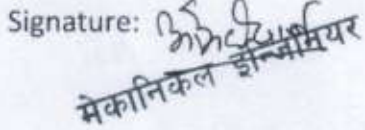 Signature:
मेकानिकल ईन्जिनियर